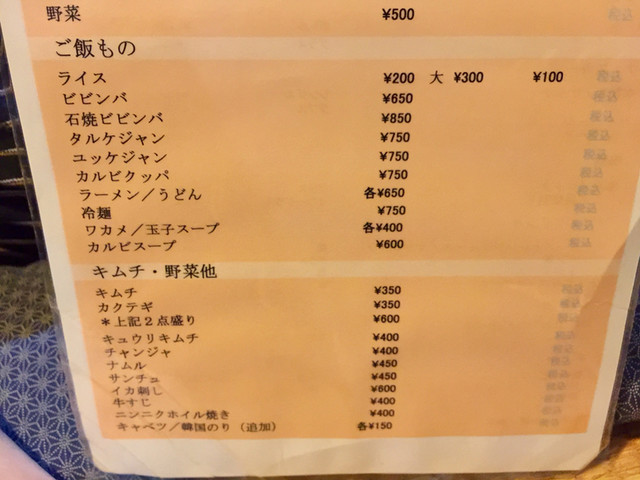 野菜 ¥500
ご飯もの
ライス ¥200 大 ¥300 ¥100
ビビンバ ¥650
石焼ビビンバ ¥850
タルケジャン ¥750
ユッケジャン ¥750
カルビクッパ ¥750
ラーメン／うどん 各¥650
冷麺 ¥750
ワカメ／玉子スープ 各¥400
カルビスープ ¥600
キムチ・野菜他
キムチ ¥350
カクテギ ¥350
＊上記２点盛り ¥600
キュウリキムチ ¥400
チャンジャ ¥400
ナムル ¥450
サンチュ ¥450
イカ刺し ¥600
牛すじ ¥400
ニンニクホイル焼き ¥400
キャベツ／韓国のり（追加） 各¥150